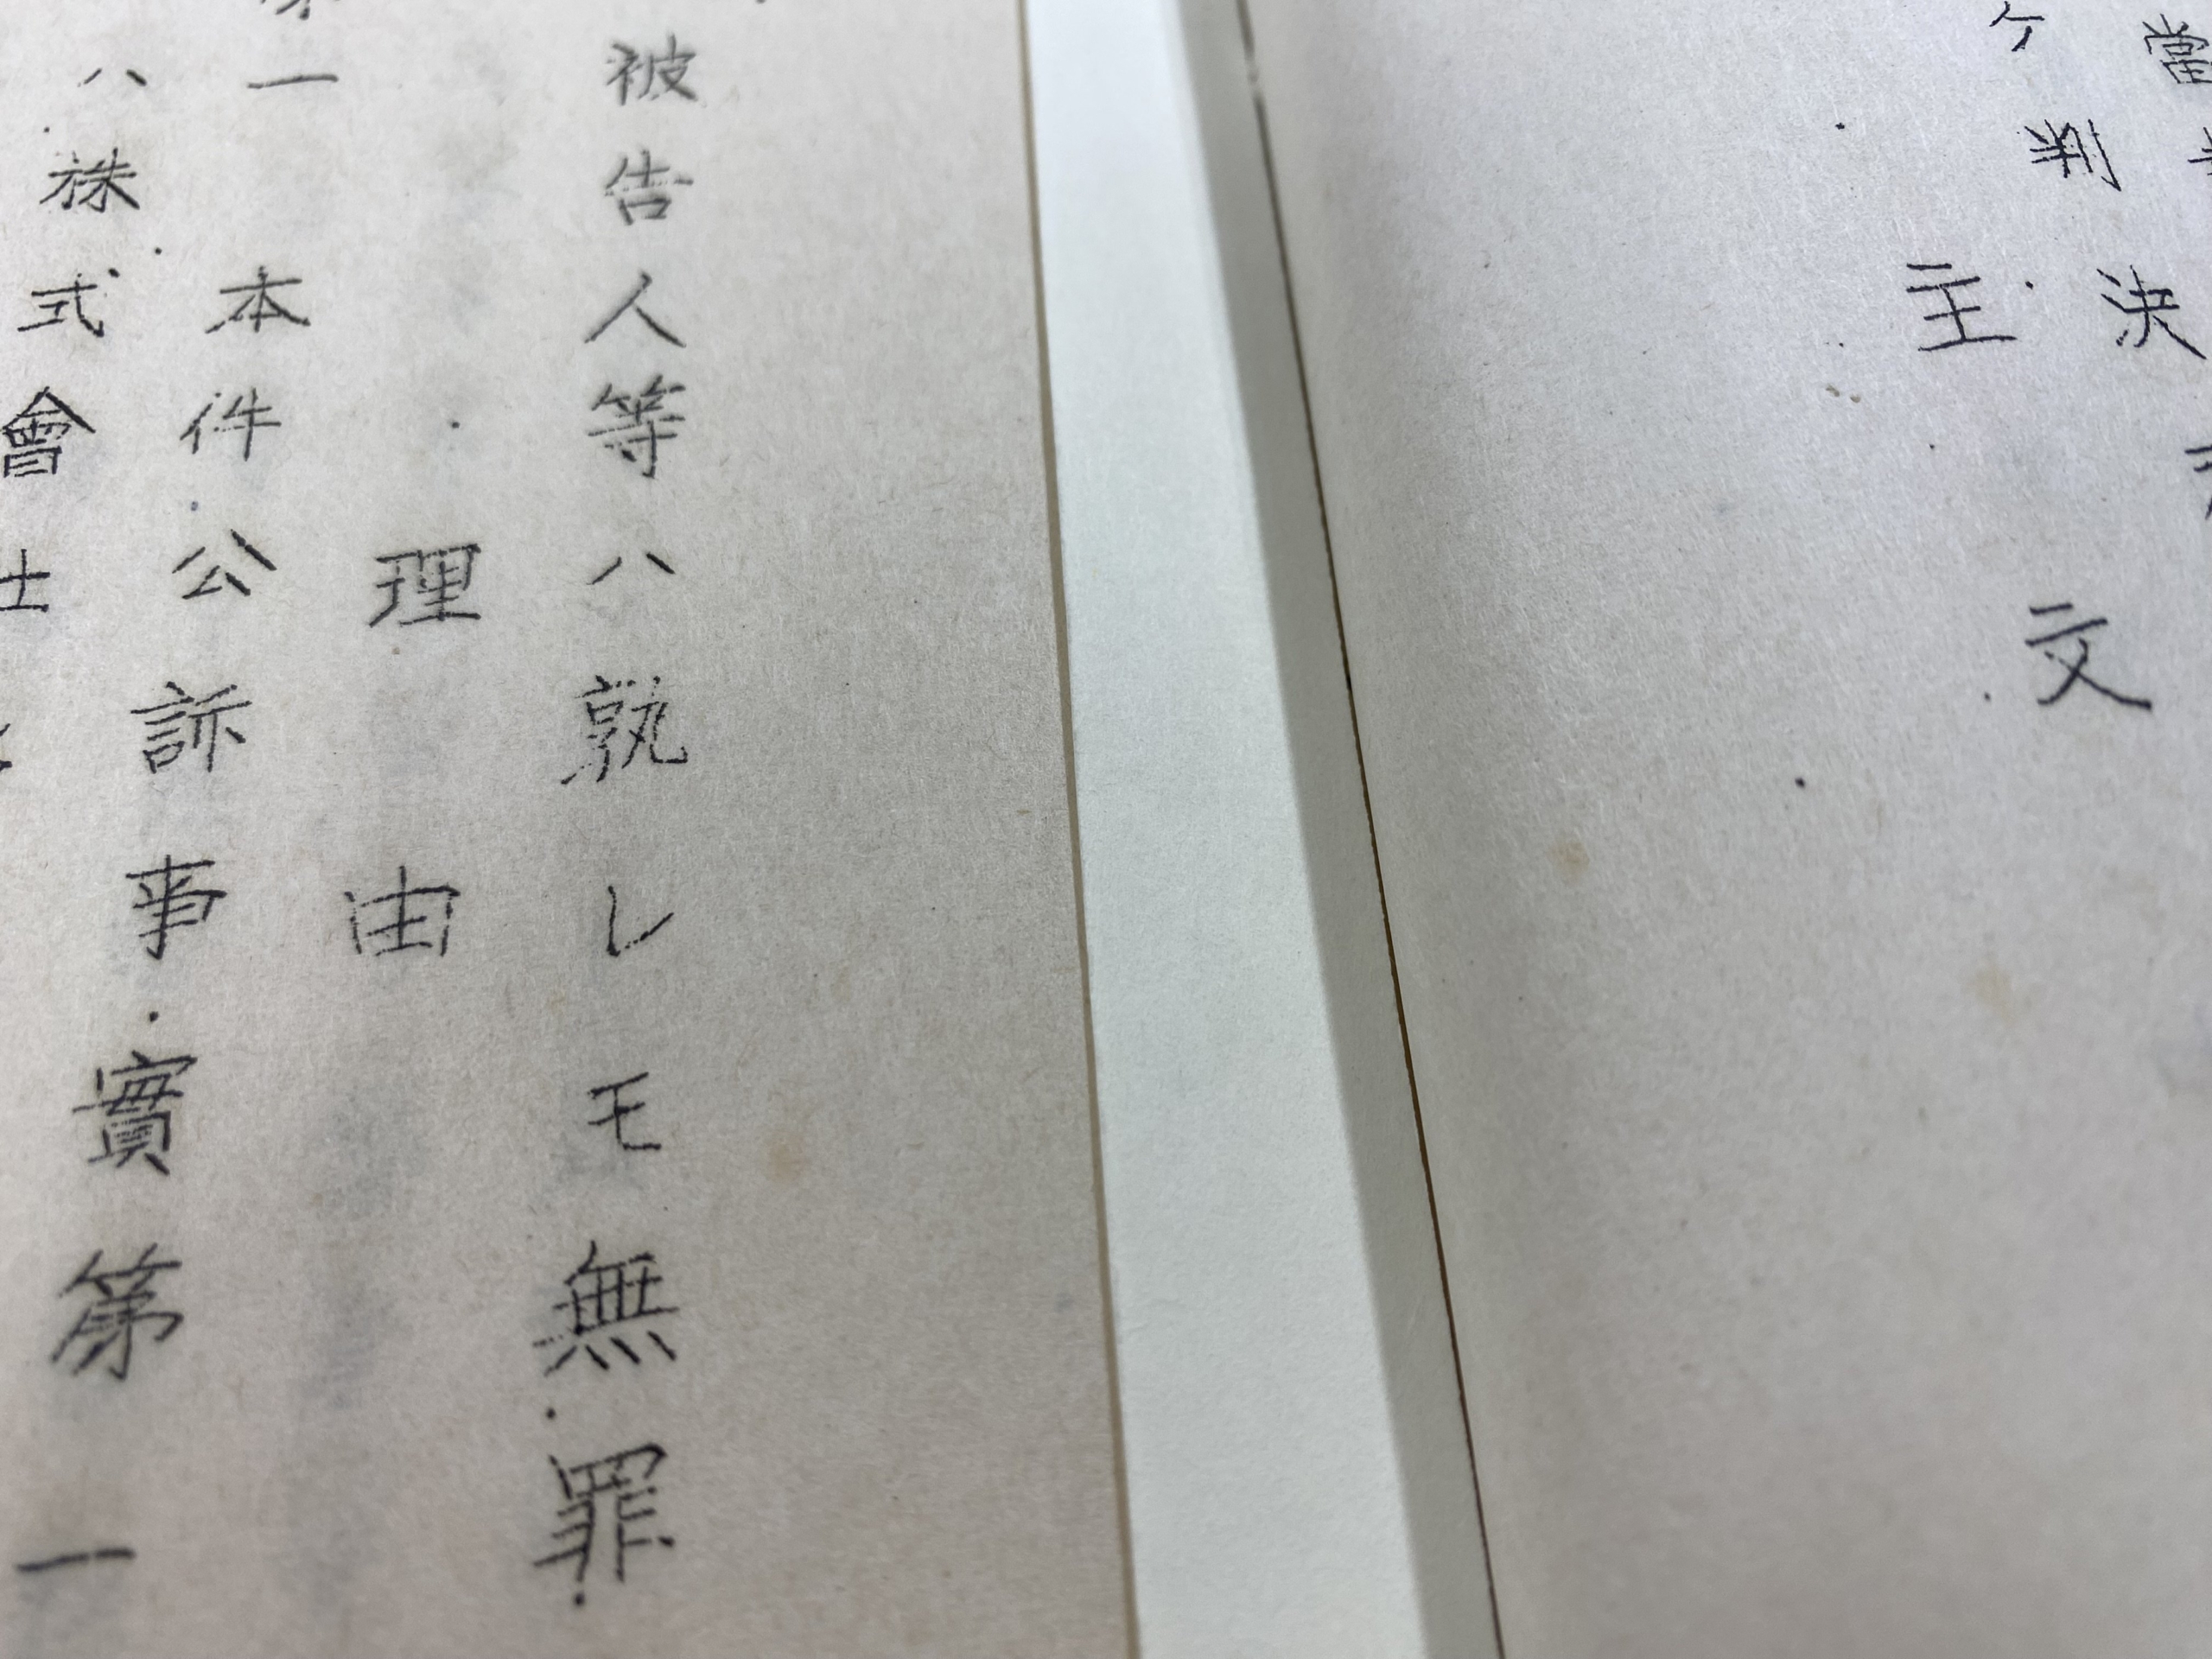 當
ケ判決
主文
被告人等ハ孰レモ無罪
理由
第一本件公訴事實第一
ハ株式會社